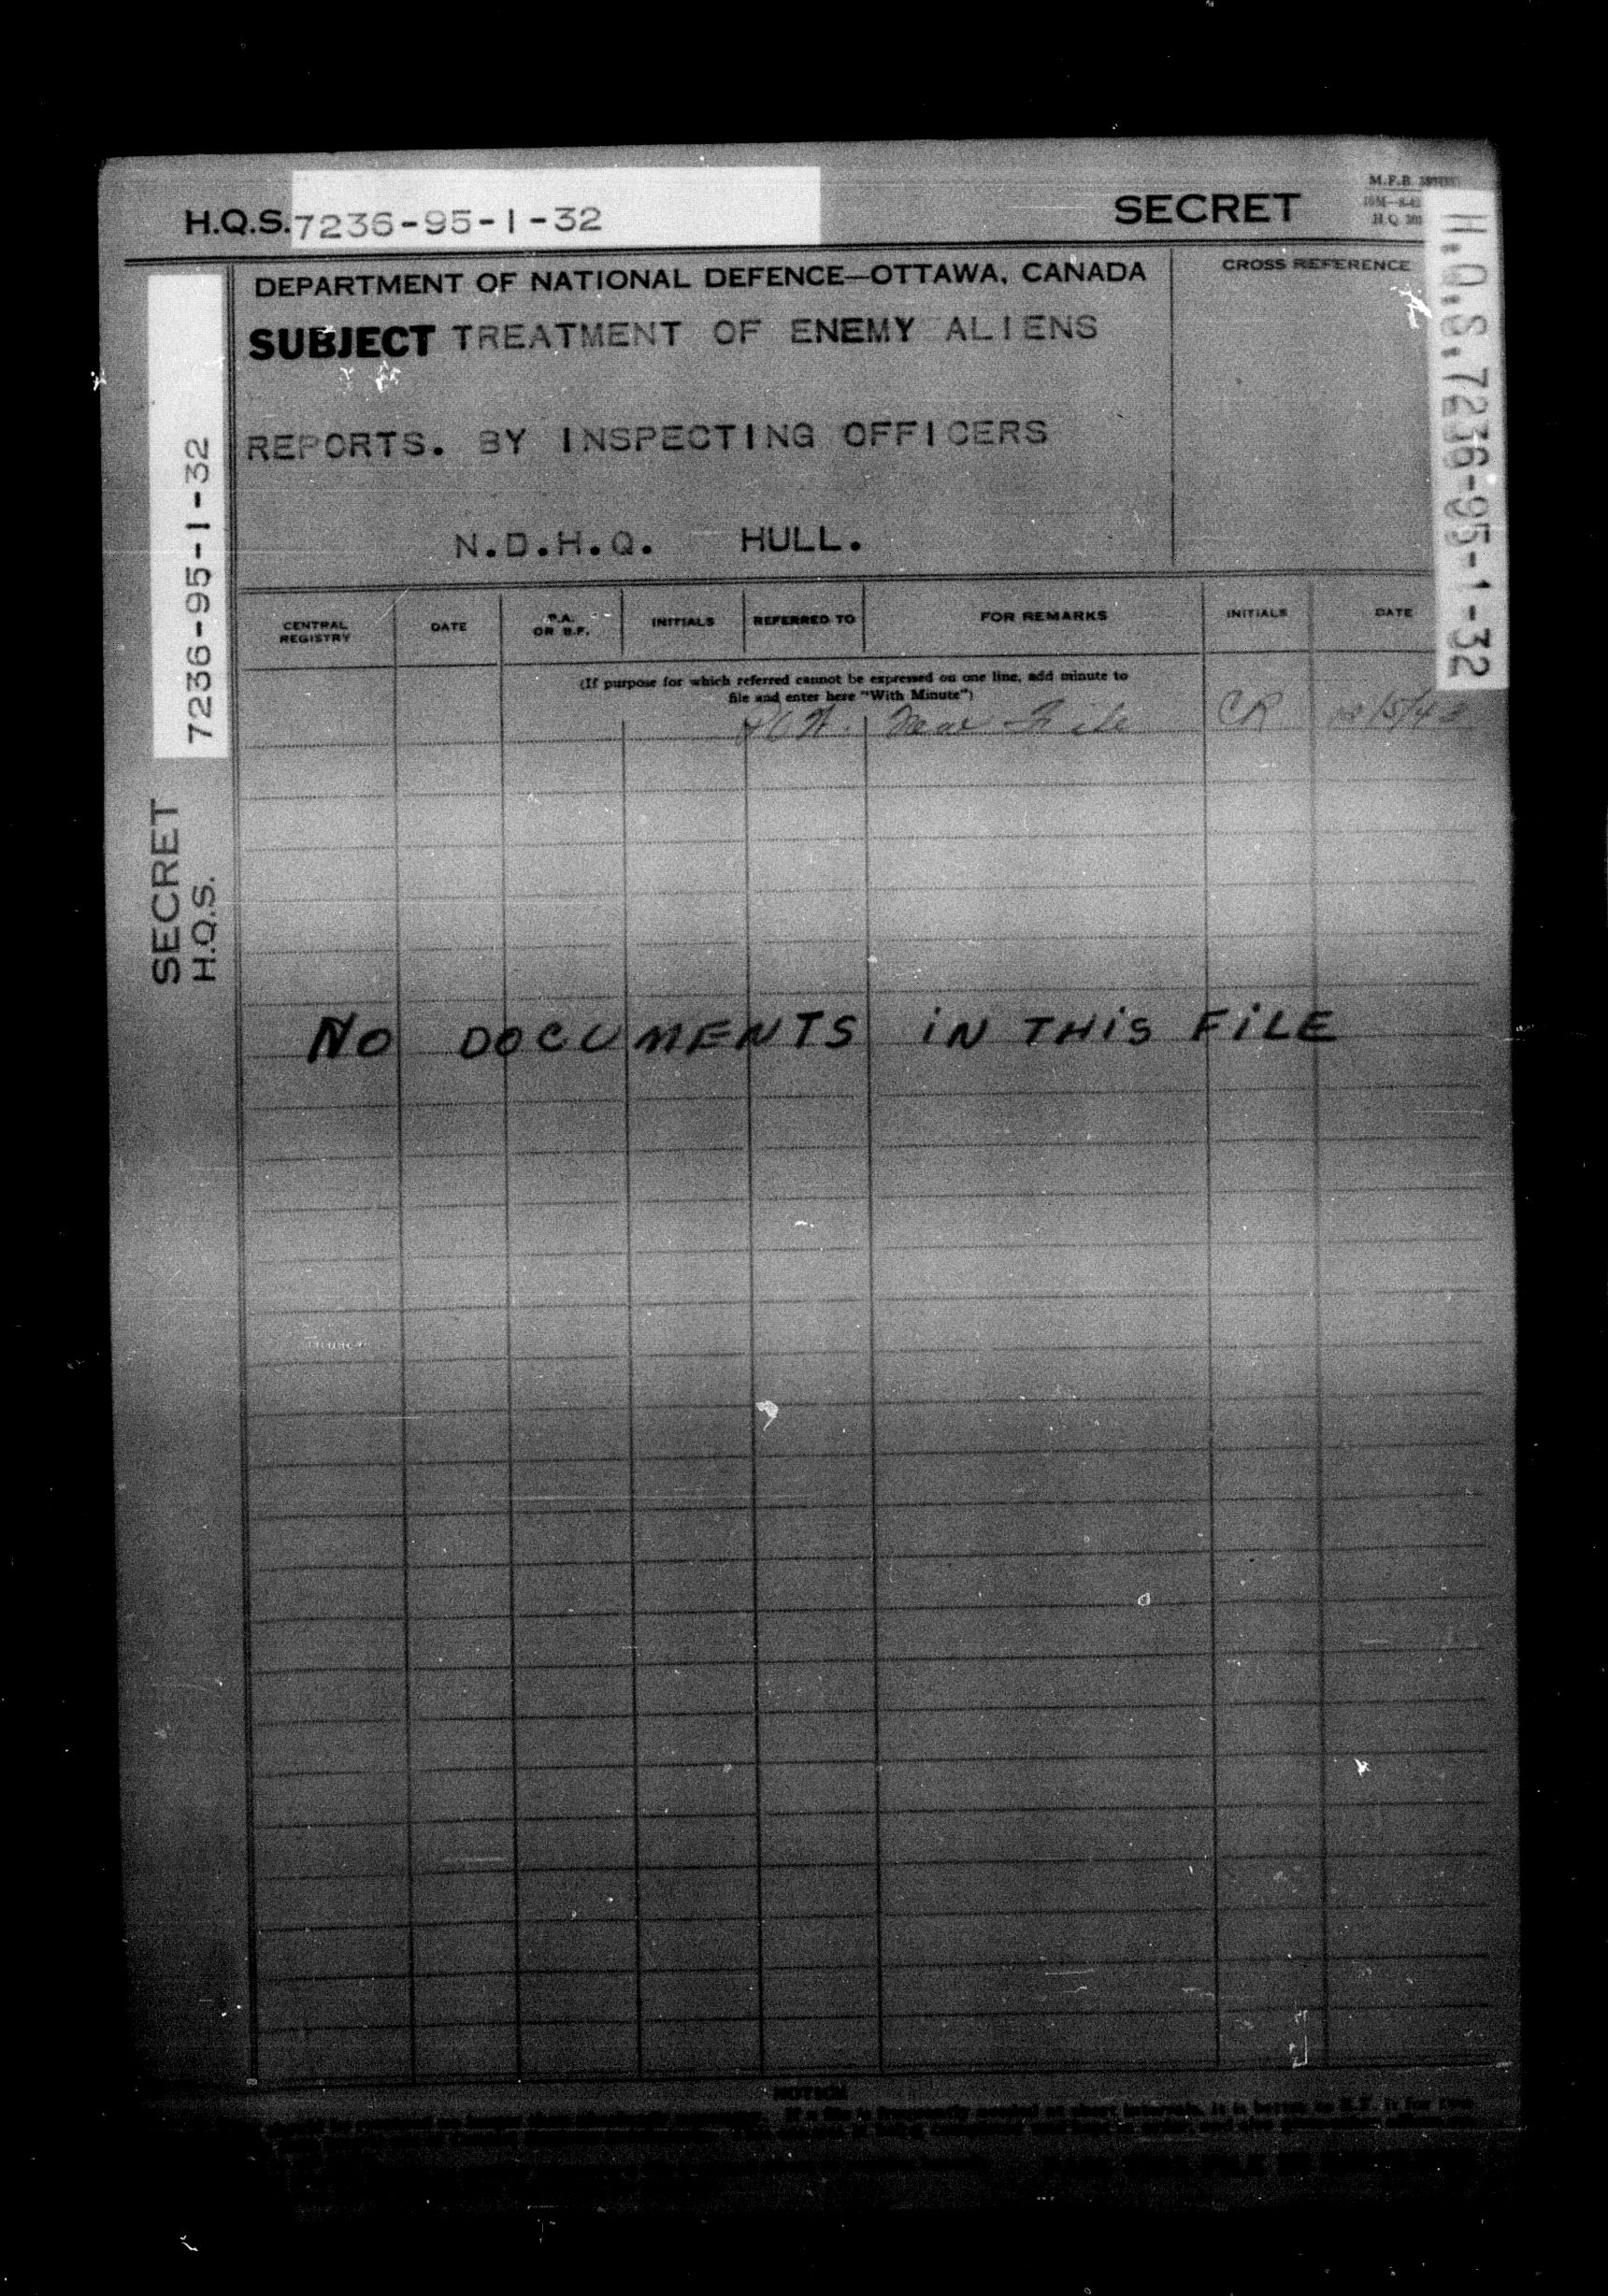 H.Q.S. 7236-95-1-32
SECRET
M.F.B.
H.Q.
DEPARTMENT OF NATIONAL DEFENCE—OTTAWA, CANADA
CROSS REFERENCE
SUBJECT TREATMENT OF ENEMY ALIENS
REPORTS. BY INSPECTING OFFICERS
N.D.H.Q. HULL.
H.Q.S. 7236-95-1-32
7236-95-1-32
SECRET
H.Q.S.
CENTRAL REGISTRY
DATE
P.A. OR B.F.
INITIALS
REFERRED TO
FOR REMARKS
INITIALS
DATE
(If purpose for which referred cannot be expressed on one line, add minute to
file and enter here "With Minute")
New File CR
NO DOCUMENTS IN THIS FILE
NOTICE